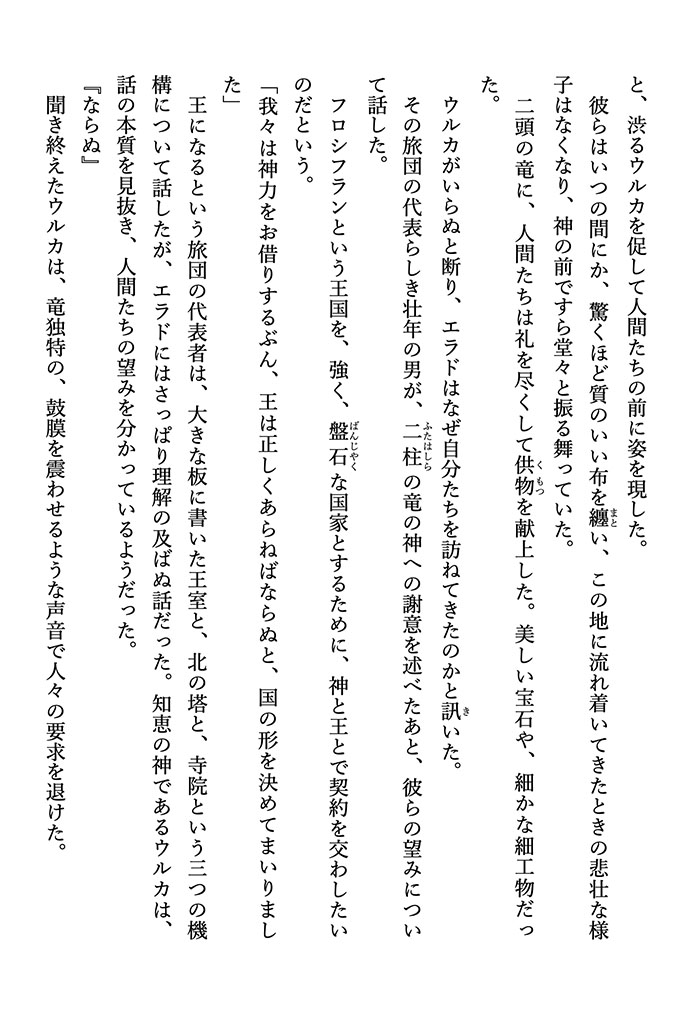 と、渋るウルカを促して人間たちの前に姿を現した。
彼らはいつの間にか、驚くほど質のいい布を纏い、この地に流れ着いてきたときの悲壮な様
子はなくなり、神の前ですら堂々と振る舞っていた。
二頭の竜に、人間たちは礼を尽くして供物を献上した。美しい宝石や、細かな細工物だっ
た。
ウルカがいらぬと断り、エラドはなぜ自分たちを訪ねてきたのかと訊いた。
その旅団の代表らしき壮年の男が、二柱の竜の神への謝意を述べたあと、彼らの望みについ
て話した。
フロシフランという王国を、強く、盤石な国家とするために、神と王とで契約を交わしたい
のだという。
「我々は神力をお借りするぶん、王は正しくあらねばならぬと、国の形を決めてまいりまし
た」
王になるという旅団の代表者は、大きな板に書いた王室と、北の塔と、寺院という三つの機
構について話したが、エラドにはさっぱり理解の及ばぬ話だった。知恵の神であるウルカは、
話の本質を見抜き、人間たちの望みを分かっているようだった。
『ならぬ』
聞き終えたウルカは、竜独特の、鼓膜を震わせるような声音で人々の要求を退けた。